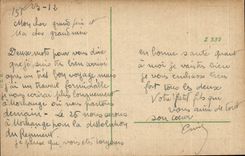 15/ 23-12
Mon cher grand père et
Ma chère grand mère
Deux mots pour vous dire
que je suis très bien arrivé
après un très bon voyage mais
j'ai un travail formidable
je vous écrirai plus longuement
à où nous partons
demain. Le 26 nous serons
à pour la dissolution
du Régiment
Je pense que vous êtes toujours
Z 332
en bonne santé quant
à moi je vais très bien
je vous embrasse bien
fort tous les deux
Votre petit fils qui
vous aime de tout
son cœur